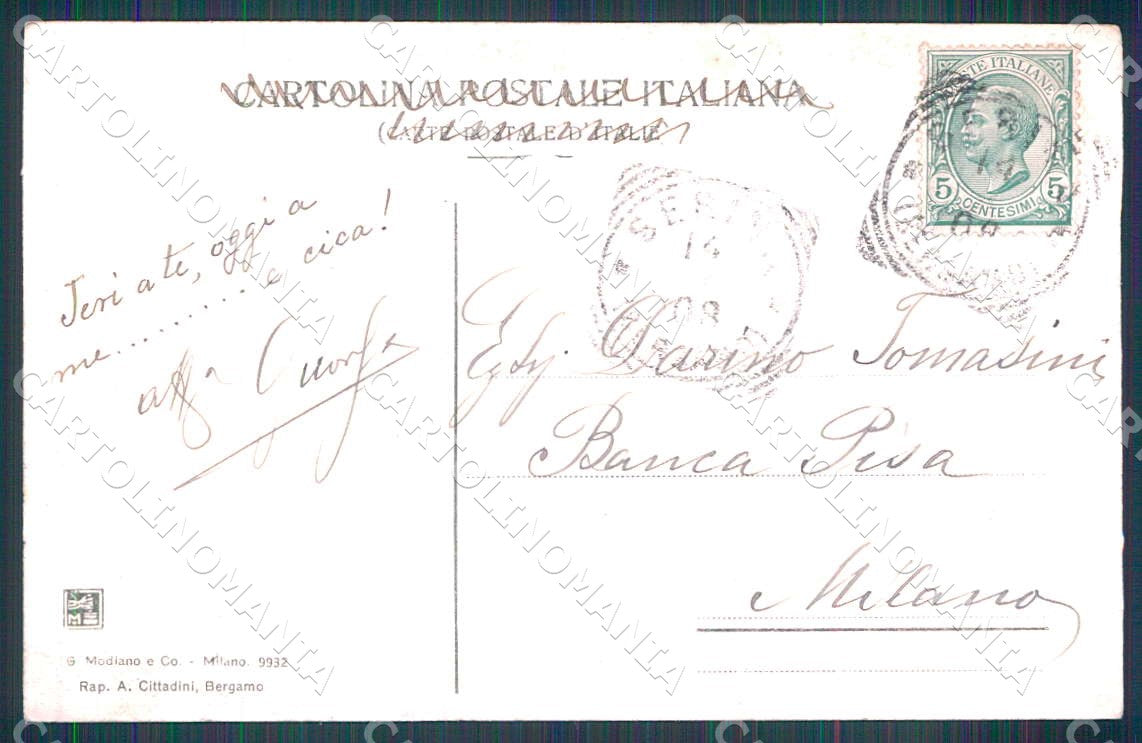 CARTOLINA POSTALE ITALIANA
(CARTE POSTALE D'ITALIE
POSTE ITALIANE
5 5
CENTESIMI
SERIN
14
08
Jeri a te, oggi a
me.......... e cica!
aff
Egg. Darino Tomasini
Banca Pisa
Milano
G Modiano e Co. - Milano. 9932
Rap. A. Cittadini, Bergamo
CARTOLINOMANIA